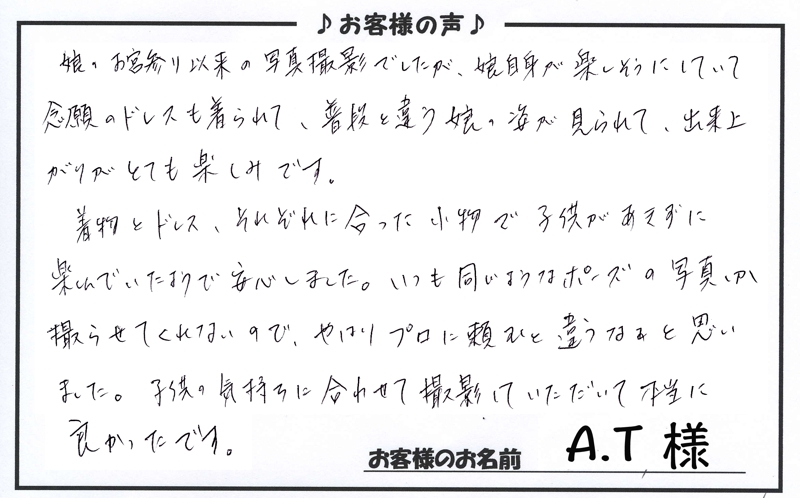 ♪お客様の声♪
娘のお宮参り以来の写真撮影でしたが、娘自身が楽しそうにしていて
念願のドレスも着られて、普段と違う娘の姿が見られて、出来上
がりがとても楽しみです。
着物とドレス、それぞれに合った小物で子供があきずに
楽しんでいたようで安心しました。いつも同じようなポーズの写真しか
撮らせてくれないので、やはりプロに頼むと違うなぁと思い
ました。子供の気持ちに合わせて撮影していただいて本当に
良かったです。
お客様のお名前 A.T 様